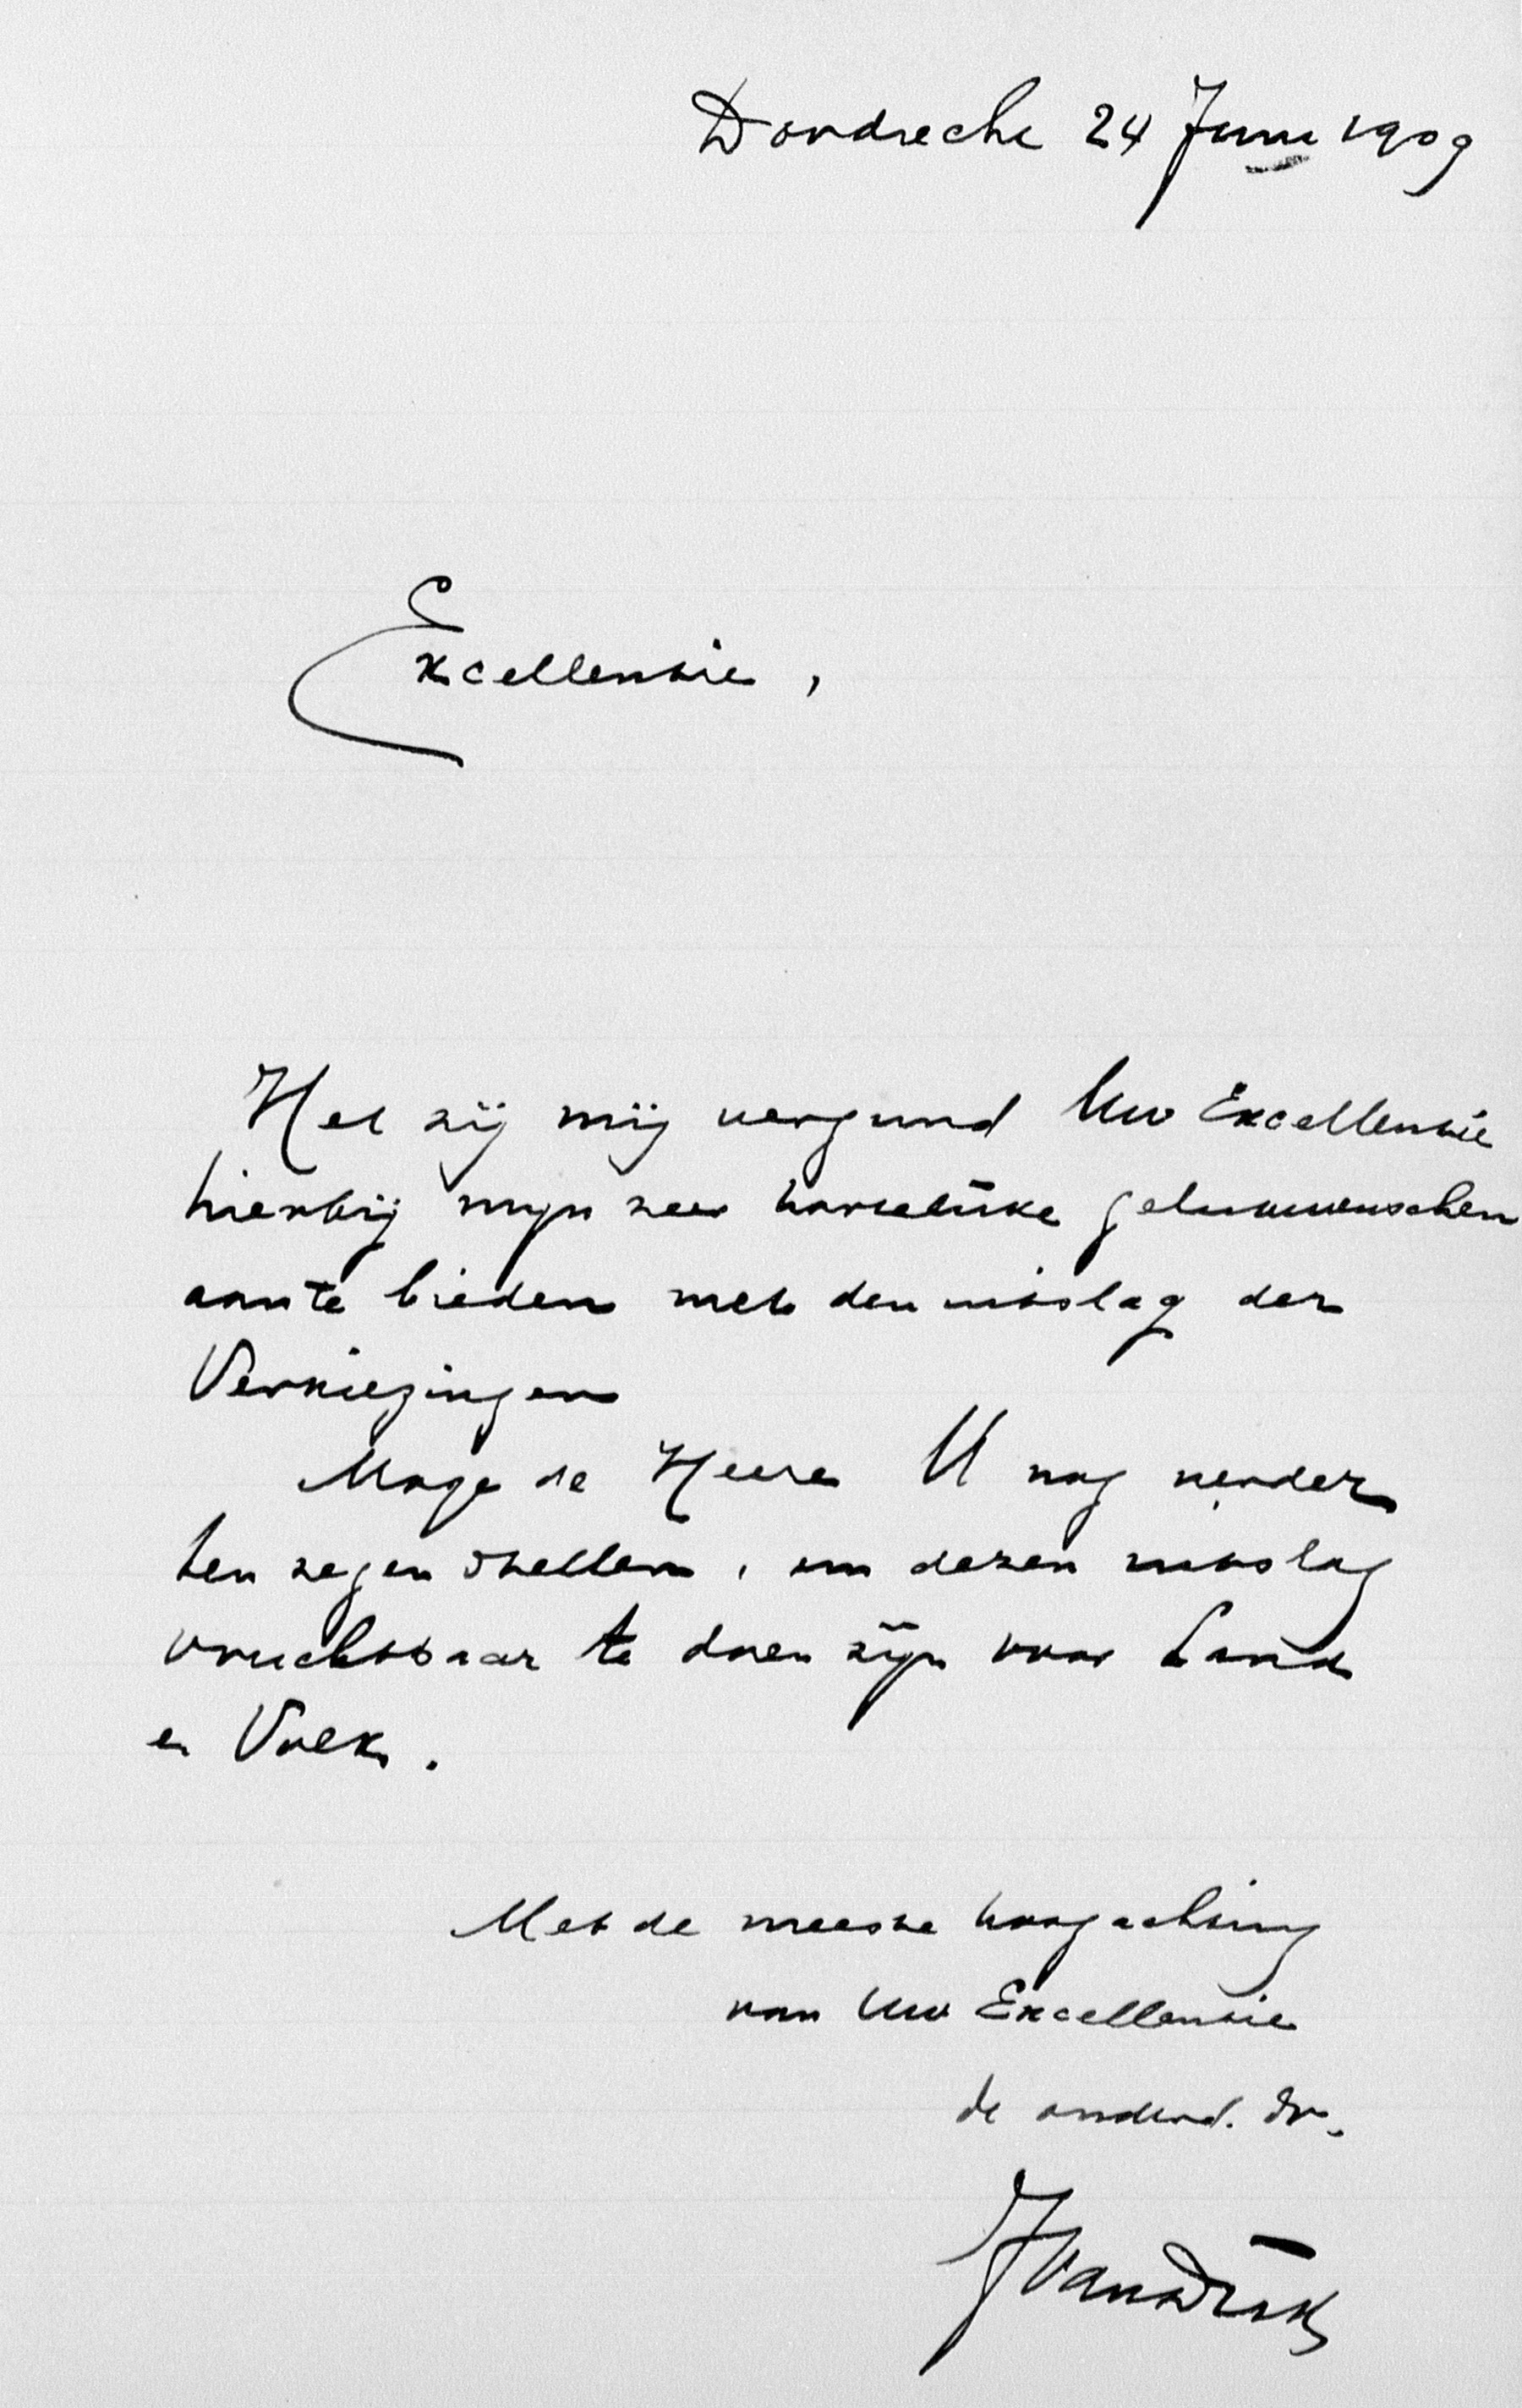 Dordrecht 24 Juni 1909
Excellentie,
Het zij mij vergund Uw Excellentie
hierbij mijn zeer hartelijke gelukwenschen
aan te bieden met den uitslag der
Verkiezingen
Moge de Heere U nog verder
ten zegen stellen, om dezen uitslag
vruchtbaar te doen zijn voor Land
en Volk.
Met de meeste hoogachting
van Uw Excellentie
de onderd. dr.